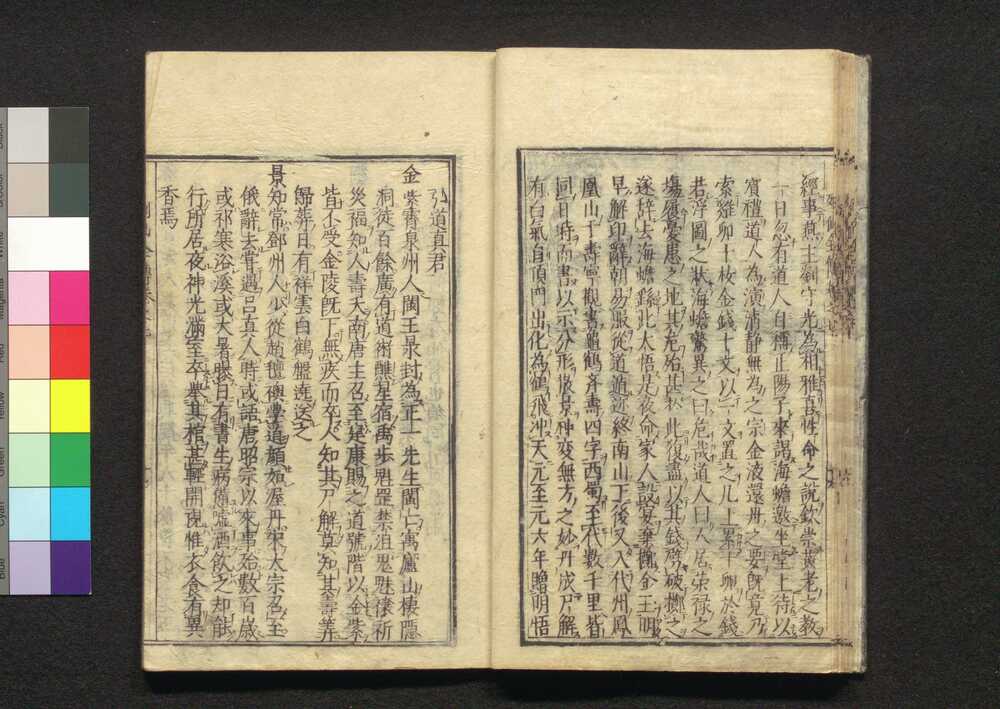 經事燕主劉守光為相雅喜性命之說欽崇黃老之教
一日忽有道人自稱正陽子來謁海蟾邀坐堂上待以
賓禮道人為演清靜無為之宗金液還丹之要既竟乃
索雞卵十枚金錢十文以一文置之几上累十卵於錢
若浮圖之狀海蟾驚異之曰危哉道人曰人居榮祿之
場履憂患之地其危殆甚於此復盡以其錢劈破擲之
遂辭去海蟾繇此大悟是夜命家人設宴棄擲金玉明
早解印辭朝易服從道遁迹終南山下後又入代州鳳
凰山于壽寧觀書龜鶴齊壽四字西蜀至代數千里皆
同日時而書以示分形散景神変無方之妙丹成尸解
有白氣自頂門出化為鶴飛冲天元至元六年贈明悟
弘道真君
金紫霄泉州人閩王㫤封為正一先生閩亡寓廬山棲隱
洞徒百餘廣有道術醮星宿禹步魁罡禁沮鬼魅禳祈
災福知人壽夭南唐主召至建康賜之道號階以金紫
皆不受金陵既下無疾而卒人知其尸解莫知其壽筭
歸葬日有祥雲白鶴盤遶送之
景知常鄧州人少從趙壇嶼學道顏如渥丹宋太宗召至
俄辭去嘗遇呂真人時或語唐昭宗以來事殆數百歲
或祁寒浴溪或大暑曝日有書生病僃嘘酒飲之却能
行所居夜神光滿室卒舉其棺甚輕開視惟衣食有異
香焉